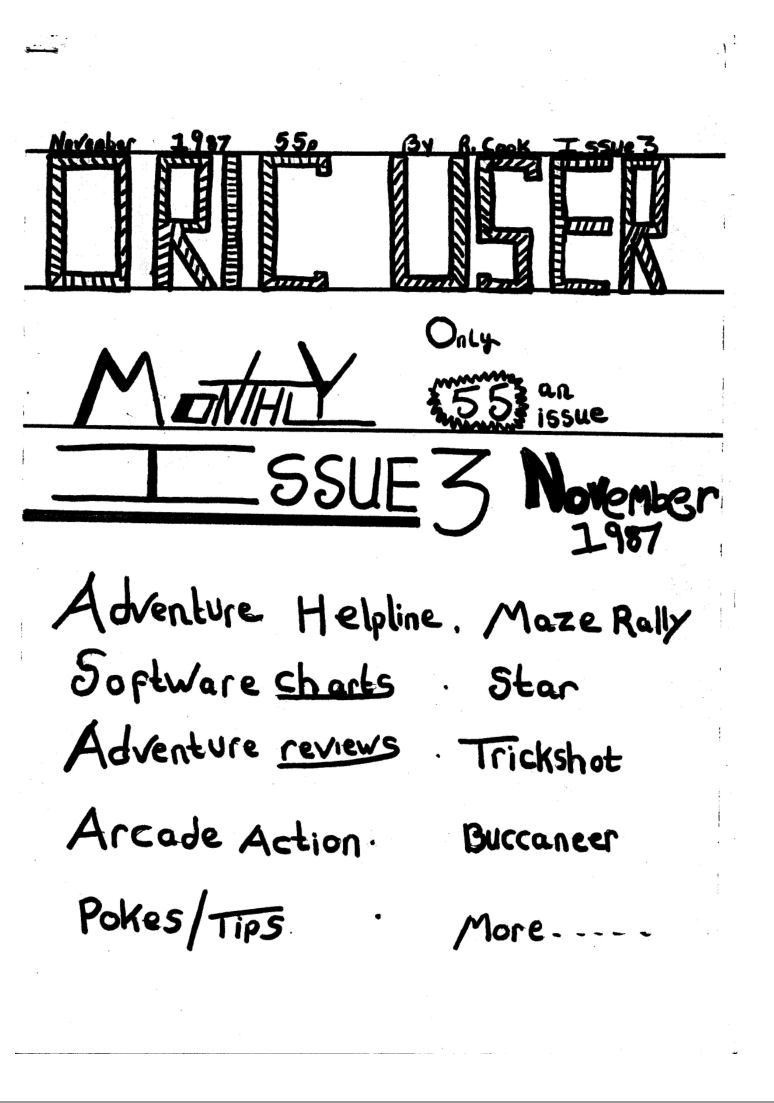 November 1987 55p By R. Cook Issue 3
ORIC USER
Only
MONTHLY
55 an
issue
ISSUE 3 November
1987
Adventure Helpline. Maze Rally
Software charts · Star
Adventure reviews · Trickshot
Arcade Action · Buccaneer
Pokes/Tips · More-----